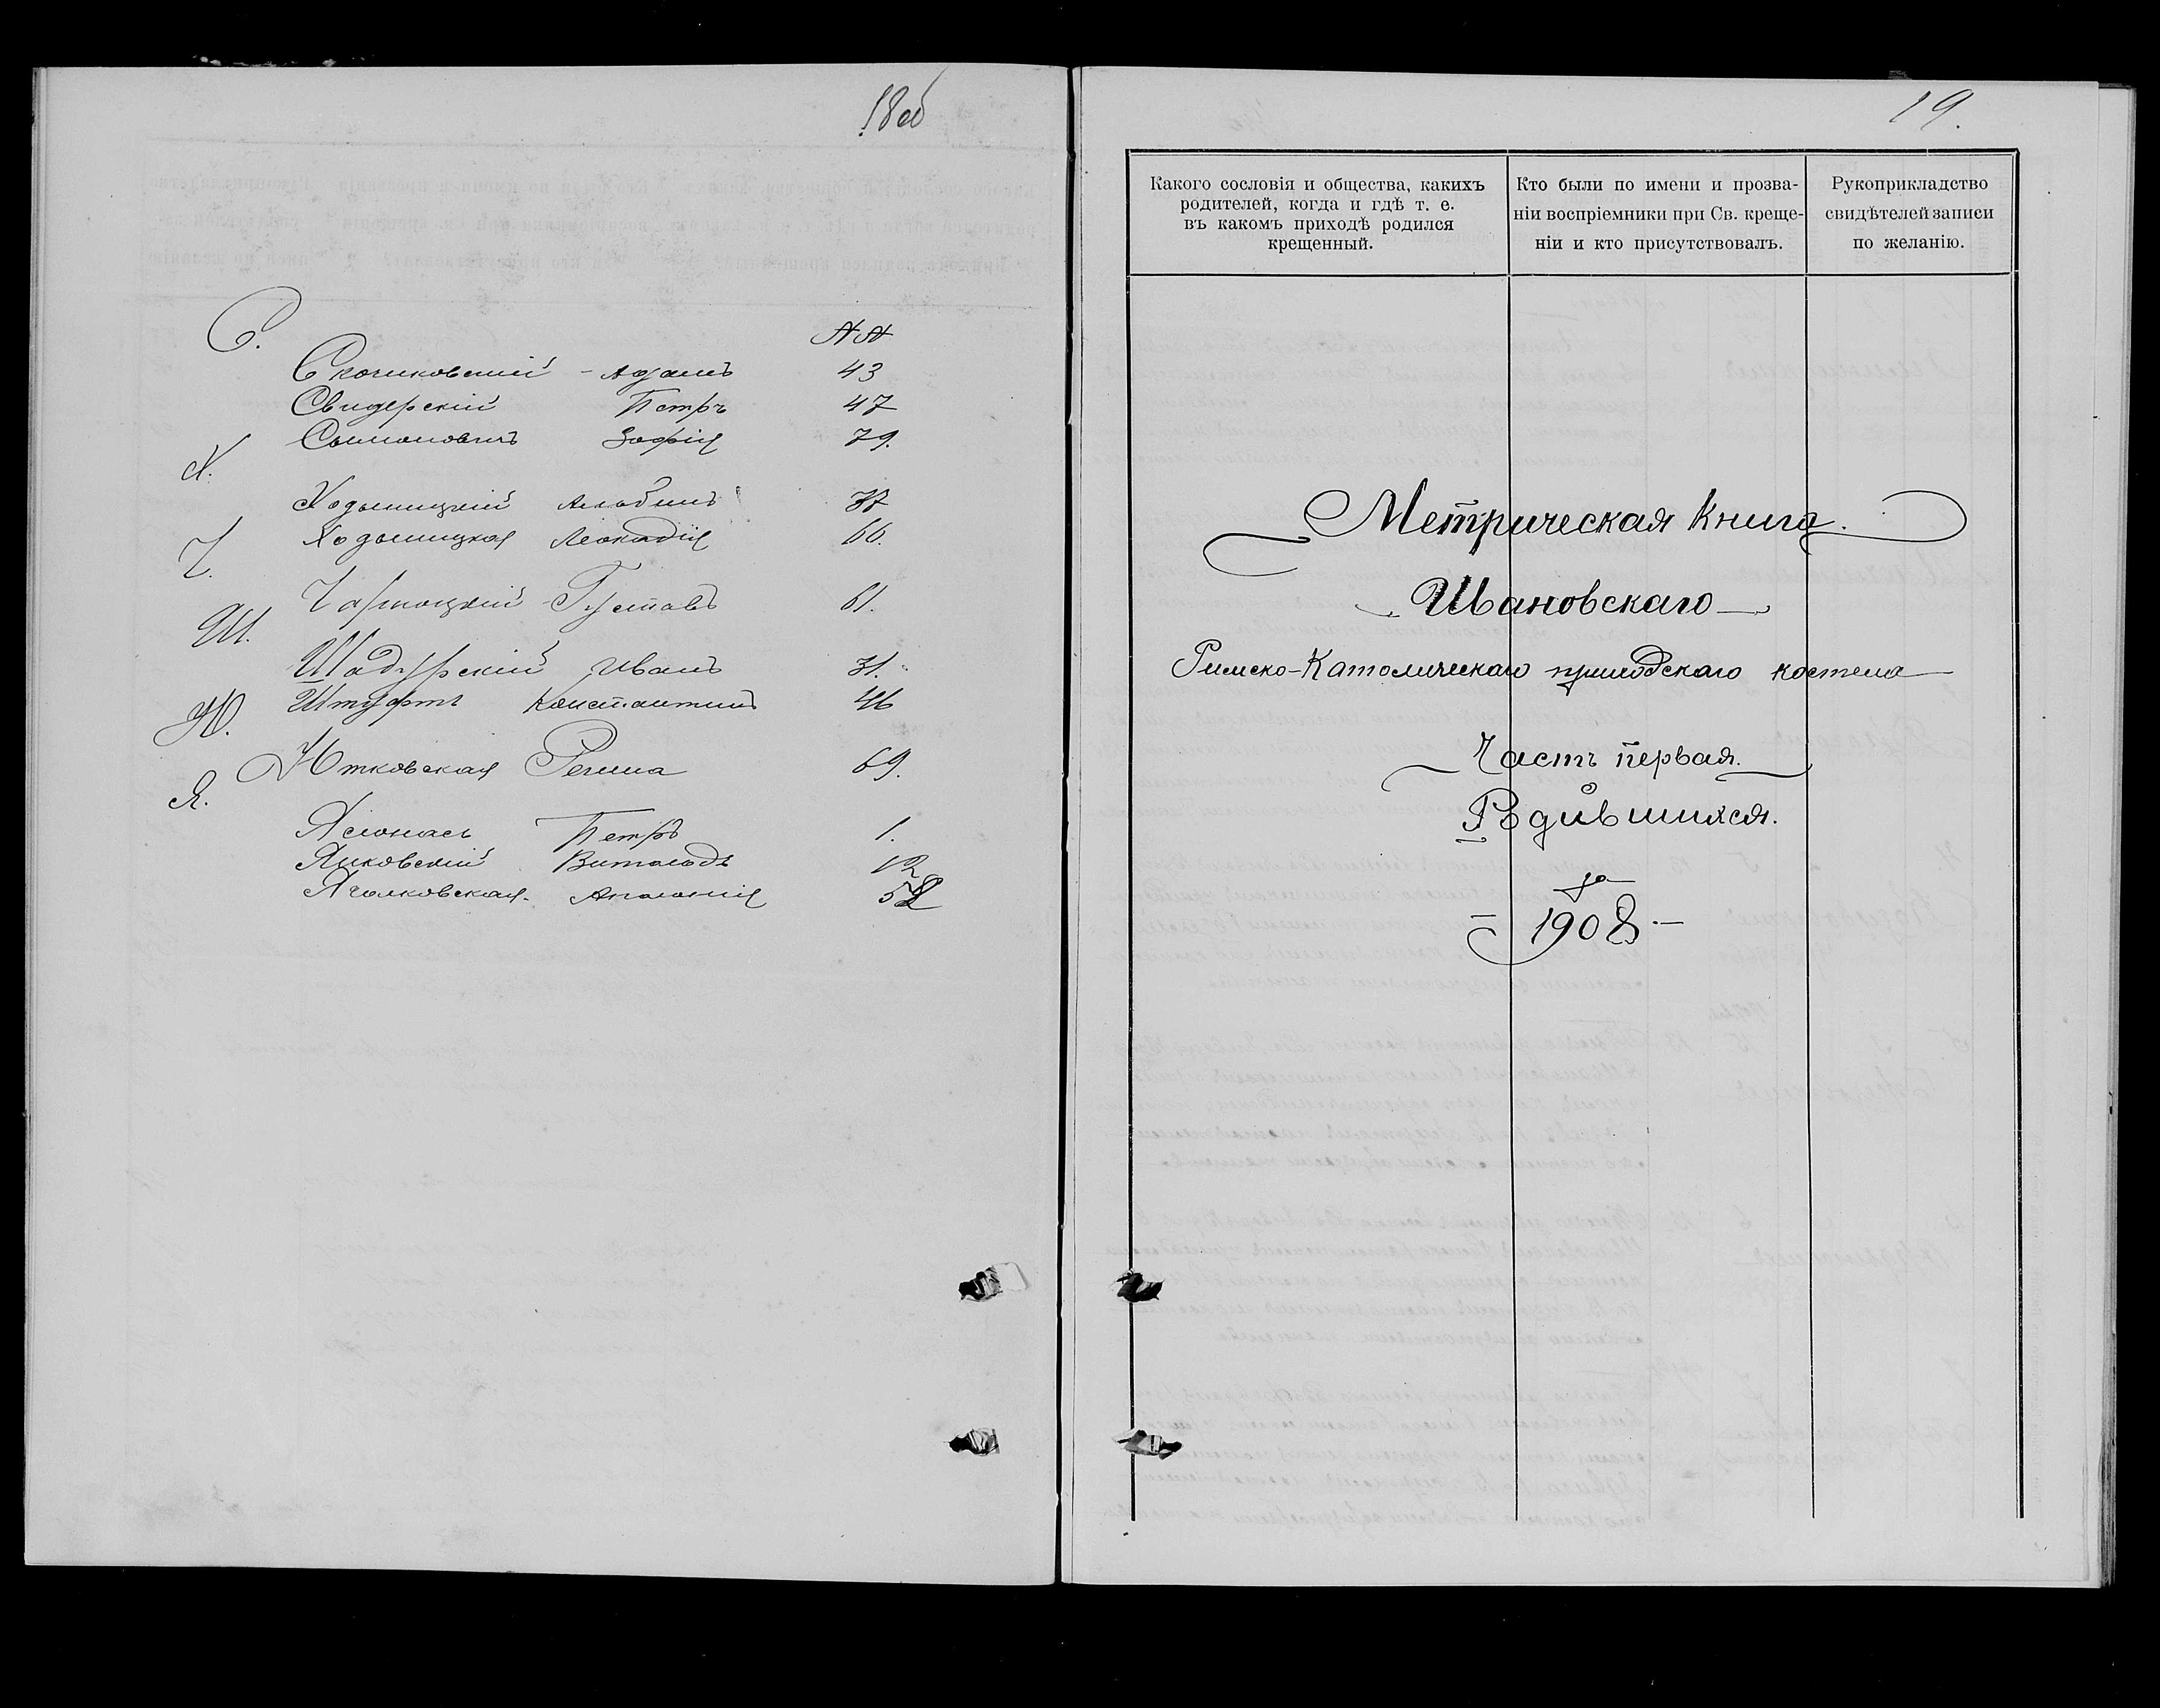 18об
С.
№№
Скочиковскій - Адамъ 43
Свидерскій Петръ 47
Сымоновичъ Зофія 79.
Х.
Ходыницкій Альбинъ 37
Ходыницкая Леокадія 66.
Ч.
Чарноцкій Густавъ 61.
Ш.
Шадурскій Иванъ 31.
Штуфтъ Константинъ 46
Ю.
Ютковская Регина 69.
Я.
Ясюнасъ Петръ 1.
Янковскій Витольдъ 12
Яголковская Аполонія 52
19.
Какого сословія и общества, какихъ
родителей, когда и гдѣ т. е.
въ какомъ приходѣ родился
крещенный.
Кто были по имени и прозва-
ніи воспріемники при Св. креще-
ніи и кто присутствовалъ.
Рукоприкладство
свидѣтелей записи
по желанію.
Метрическая Книга.
Швановскаго
Римско-Католическаго приходскаго костела
Часть первая.
Родившихся.
1908